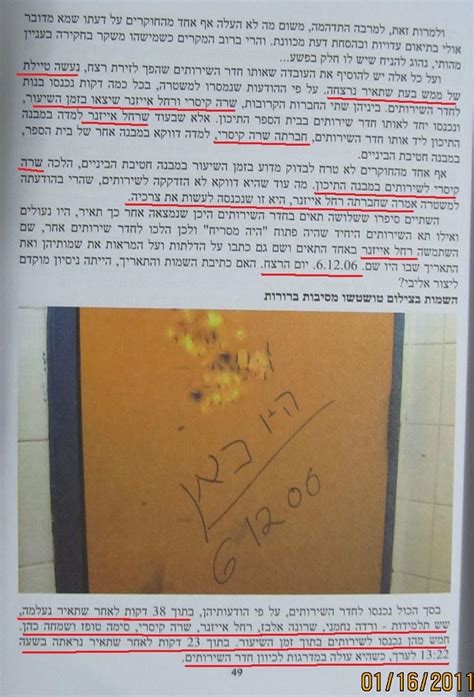 ולמרות זאת, למרבה התדהמה, משום מה לא העלה אף אחד מהחוקרים על דעתו שמא מדובר
אולי בתיאום עדויות ובהסחת דעת מכוונת. והרי ברוב המקרים כשמישהו משקר בחקירה בעניין
מהותי, נהוג להניח שיש לו חלק בפשע...
ועל כל אלה יש להוסיף את העובדה שאותו חדר השירותים שהפך לזירת רצח, נעשה טיילת
של ממש בעת שתאיר נרצחה. על פי ההודעות שנמסרו למשטרה, בכל כמה דקות נכנסו בנות
לחדר השירותים. ביניהן שתי החברות הקרובות, שרה קיסרי ורחל אייזנר שיצאו בזמן השיעור,
ונכנסו יחד לאותו חדר שירותים בבית הספר התיכון. אלא שבעוד שרחל אייזנר למדה במבנה
התיכון ליד אותו חדר השירותים, חברתה שרה קיסרי, למדה דווקא במבנה אחר של בית הספר,
מבנה חטיבת הביניים.
אף אחד מהחוקרים לא טרח לבדוק מדוע בזמן השיעור במבנה חטיבת הביניים, הלכה שרה
קיסרי לשירותים במבנה התיכון. מה עוד שהיא דווקא לא הזדקקה לשירותים, שהרי בהודעתה
למשטרה אמרה שחברתה רחל אייזנר, היא זו שנכנסה לעשות את צרכיה.
השתיים סיפרו ששלושה תאים בחדר השירותים היכן שנמצאה אחר כך תאיר, היו נעולים
ואילו תא השירותים היחיד שהיה פתוח "היה מסריח" ולכן הלכו לחדר שירותים אחר, שם
השתמשה רחל אייזנר באחד התאים ושם גם כתבו על הדלתות ועל המראות את שמותיהן ואת
התאריך שבו היו שם. 6.12.06. יום הרצח. האם כתיבת השמות והתאריך, הייתה ניסיון מוקדם
ליצור אליבי?
השמות בצילום טושטשו מסיבות ברורות
היו כאן
6 12 06
בסך הכול נכנסו לחדר השירותים, על פי הודעותיהן, בתוך 38 דקות לאחר שתאיר נעלמה,
שש תלמידות - ורדה נחמני, שרונה אלבז, רחל אייזנר, שרה קיסרי, סימה טופז ושמחה כהן.
חמש מהן נכנסו לשירותים בתוך זמן השיעור. בתוך 23 דקות לאחר שתאיר נראתה בשעה
13:22 לערך, כשהיא עולה במדרגות לכיוון חדר השירותים.
49
01/16/2011